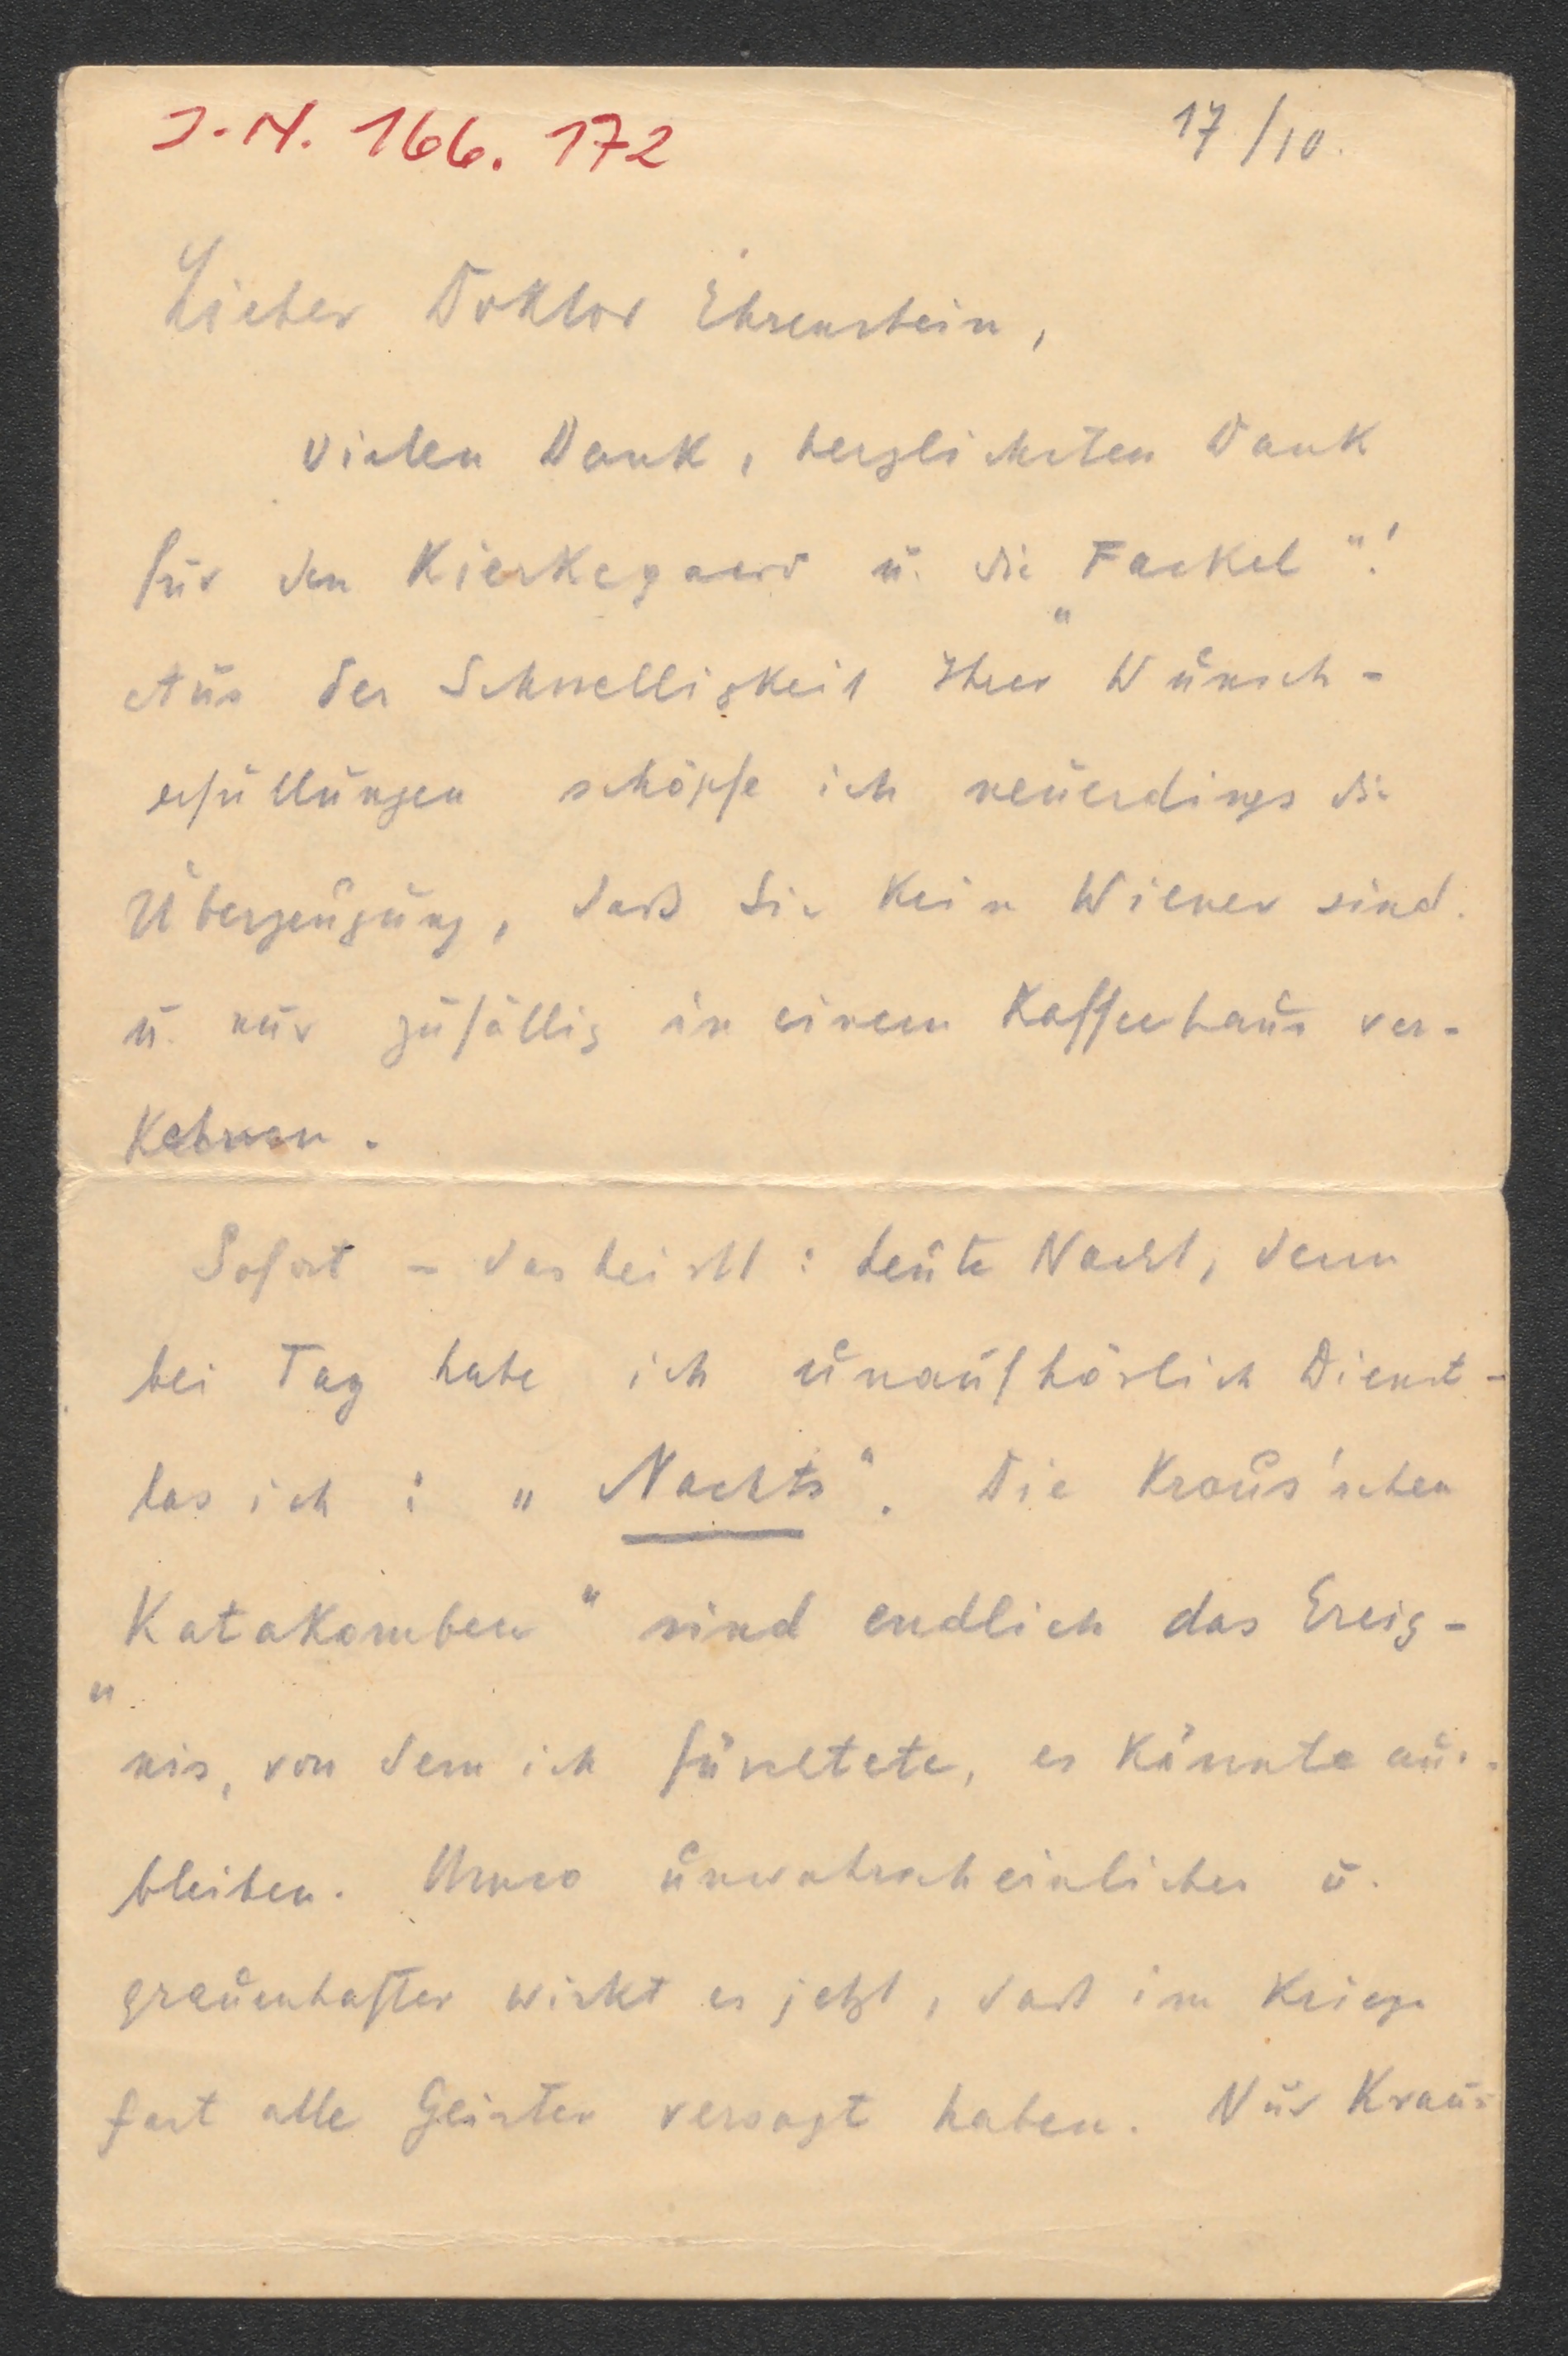 J.N. 166.172
17/10.
Lieber Doktor Ehrenstein,
vielen Dank, herzlichsten Dank
für den Kierkegaard u. die „Fackel"!
Aus der Schnelligkeit Ihrer Wunsch-
erfüllungen schöpfe ich neuerdings die
Überzeugung, daß Sie kein Wiener sind.
u. nur zufällig in einem Kaffeehaus ver-
kehren.
Sofort – das heißt: heute Nacht, denn
bei Tag habe ich unaufhörlich Dienst –
las ich: „Nachts". Die Kraus'schen
„Katakomben" sind endlich das Ereig-
nis, von dem ich fürchtete, es könnte aus-
bleiben. Umso unwahrscheinlicher u.
grauenhafter wirkt es jetzt, daß im Kriege
fast alle Geister versagt haben. Nur Kraus